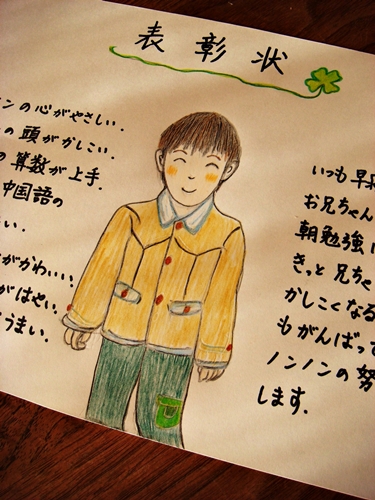 表彰状
ンの心がやさしい.
の頭がかしこい.
算数が上手.
中国語の
い.
がかわいい.
がはやい.
うまい.
いつも早
お兄ちゃん
朝勉強
きっと兄ちゃ
かしこくなる
もがんばって
ノンノンの努
します.